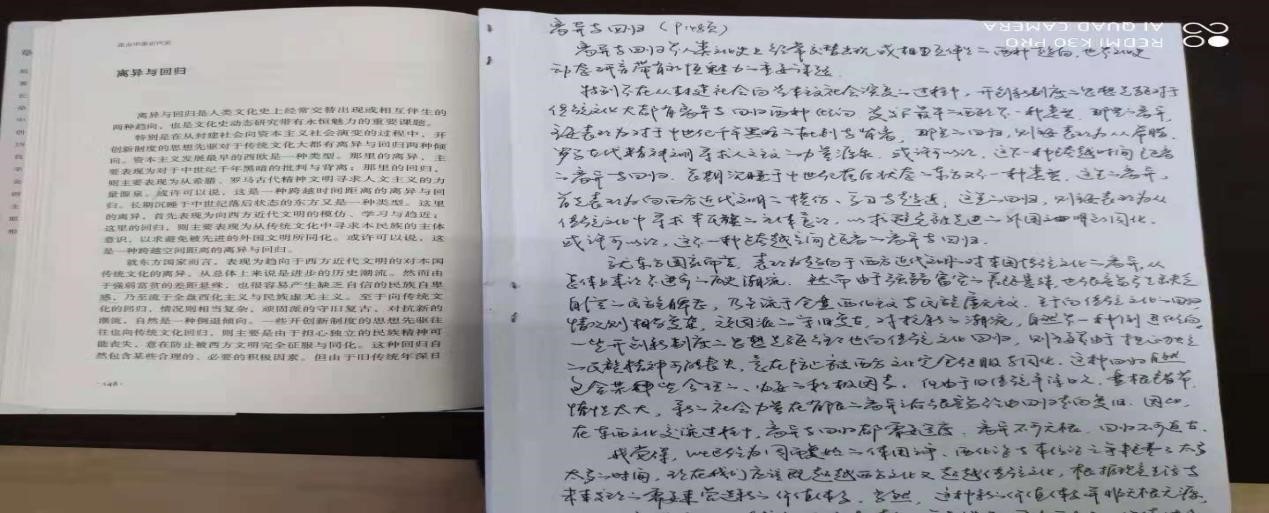 走出中国近代史
离异与回归
离异与回归是人类文化史上经常交替出现或相互伴生的
两种趋向，也是文化史动态研究带有永恒魅力的重要课题。
特别是在从封建社会向资本主义社会演变的过程中，开
创新制度的思想先驱对于传统文化大都有离异与回归两种倾
向。资本主义发展最早的西欧是一种类型。那里的离异，主
要表现为对于中世纪千年黑暗的批判与背离；那里的回归，
则主要表现为从希腊、罗马古代精神文明寻求人文主义的力
量源泉。或许可以说，这是一种跨越时间距离的离异与回
归。长期沉睡于中世纪落后状态的东方又是一种类型。这里
的离异，首先表现为向西方近代文明的模仿、学习与趋近；
这里的回归，则主要表现为从传统文化中寻求本民族的主体
意识，以求避免被先进的外国文明所同化。或许可以说，这
是一种跨越空间距离的离异与回归。
就东方国家而言，表现为趋向于西方近代文明的对本国
传统文化的离异，从总体上来说是进步的历史潮流。然而由
于强弱富贫的差距悬殊，也很容易产生缺乏自信的民族自卑
感，乃至流于全盘西化主义与民族虚无主义。至于向传统文
化的回归，情况则相当复杂，顽固派的守旧复古、对抗新的
潮流，自然是一种倒退倾向。一些开创新制度的思想先驱往
往也向传统文化回归，则主要是由于担心独立的民族精神可
能丧失，意在防止被西方文明完全征服与同化。这种回归自
然包含某些合理的、必要的积极因素。但由于旧传统年深日
·148·
离异与回归（P148页）
离异与回归是人类文化史上经常交替出现或相互伴生的两种趋向，也是文化史
动态研究带有永恒魅力的重要课题。
特别是在从封建社会向资本主义社会演变的过程中，开创新制度的思想先驱对于
传统文化大都有离异与回归两种倾向。资本主义发展最早的西欧是一种类型。那里的离异，
主要表现为对于中世纪千年黑暗的批判与背离，那里的回归，则主要表现为从希腊、
罗马古代精神文明寻求人文主义的力量源泉。或许可以说，这是一种跨越时间距离
的离异与回归。长期沉睡于中世纪落后状态的东方又是一种类型。这里的离异，
首先表现为向西方近代文明的模仿、学习与趋近，这里的回归，则主要表现为从
传统文化中寻求本民族的主体意识，以求避免被先进的外国文明所同化。
或许可以说，这是一种跨越空间距离的离异与回归。
就东方国家而言，表现为趋向于西方近代文明的对本国传统文化的离异，从
总体上来说是进步的历史潮流。然而由于强弱富贫的差距悬殊，也很容易产生缺乏
自信的民族自卑感，乃至流于全盘西化主义与民族虚无主义。至于向传统文化的回归
情况则相当复杂，顽固派的守旧复古，对抗新的潮流，自然是一种倒退倾向。
一些开创新制度的思想先驱往往也向传统文化回归，则主要是由于担心独立
的民族精神可能丧失，意在防止被西方文化完全征服与同化。这种回归自然
包含某种些合理的、必要的积极因素。但由于旧传统年深日久，盘根错节，
惰性太大，新的社会力量在有限的离异之后很容易经由回归走向复旧。因此，
在东西文化交流过程中，离异与回归都需要适度，离异不可无根，回归不可返古。
我觉得，西化论与本位论之争耗费了太多
太多的时间，现在我们应该既超越西方文化又超越传统文化，根据现实生活与
未来发展的需要来营造新的价值体系。当然，这种新的价值体系并非无根无源，
REDMI K30 PRO
AI QUAD CAMERA